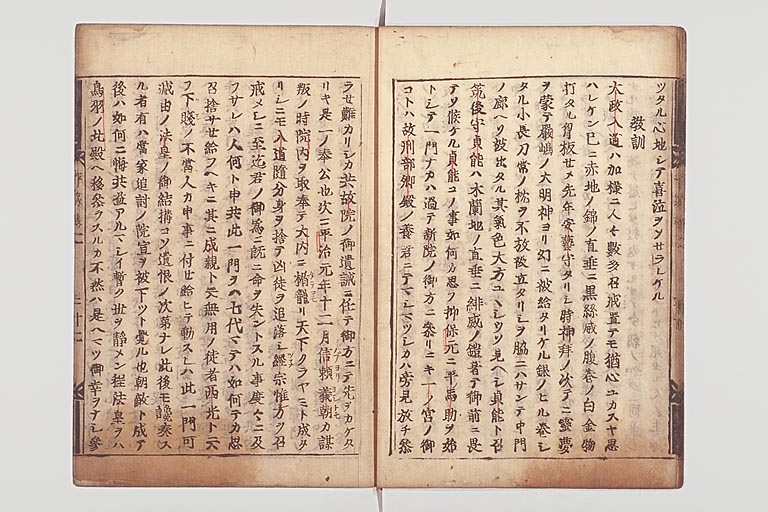 ツタル心地シテ喜泣ヲソサラレケル
教訓
太政入道ハ加樣ニ人々數多召戒置テモ猶心ユカスヤ思
ハレケン已ニ赤地ノ錦ノ直垂ニ黒絲威ノ腹巻ノ白金物
打タル胷板せメ先年安藝守タリシ時神拜ノ次テニ靈夢
ヲ蒙テ嚴嶋ノ大明神ヨリ幻ニ被給タリケル銀ノヒル巻シ
タル小長刀常ノ枕ヲ不放被立タリシヲ脇ニハサンテ中門
ノ廊ヘソ被出タル其氣色大方ユヽシウソ見ヘシ貞能ト召
筑後守貞能ハ木蘭地ノ直垂ニ緋威ノ鎧着テ御前ニ畏
テソ候ケル貞能コノ事如何カ思フ抑保元ニ平馬助ヲ始
トシテ一門ナカハ過テ新院ノ御方ニ參リニキ一ノ宮ノ御
コトハ故刑部卿殿ノ養君ニテマシマシツシカハ旁見放チ參
ラせ難カリシカ共故院ノ御遺誡ニ任テ御方ニテ先ヲカケタ
リキ是一ノ奉公也次ニ平治元年十二月信頼義朝カ謀
叛ノ時院内ヲ取奉テ大内ニ楯籠リ天下クラヤミト成タ
リシニモ入道隨分身ヲ捨テ凶徒ヲ追落シ經宗惟方ヲ召
戒メシニ至迄君ノ御爲ニ既ニ命ヲ失ントスル事度々ニ及
フサレハ人何ト申共此一門ヲハ七代マテハ如何テカ思
召捨サせ給フヘキニ其ニ成親ト云無用ノ徒者西光ト云
フ下賤ノ不當人カ申事ニ付せ給ヒテ動スレハ此一門可
滅由ノ法皇ノ御結搆コソ遺恨ノ次第ナレ此後モ讒奏ス
ル者有ハ當家追討ノ院宣ヲ被下ツト覺ル也朝敵ト成テ
後ハ如何ニ悔共益アルマシイ暫ク世ヲ靜メン程法皇ヲハ
鳥羽ノ北殿ヘ移參ラスルカ不然ハ是ヘマレ御幸ヲナシ參